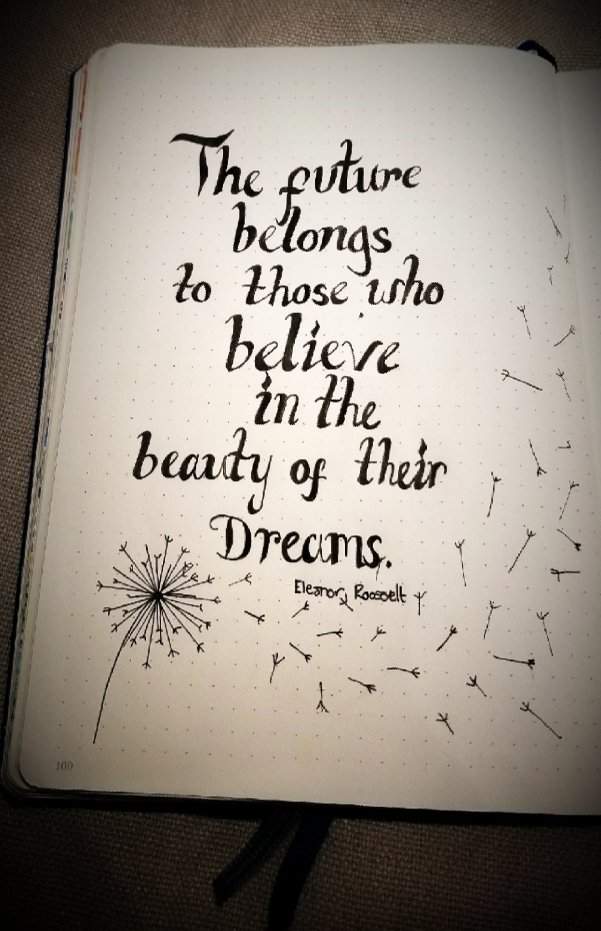 The future
belongs
to those who
believe
in the
beauty of their
Dreams.
Eleanor Roosevelt
100